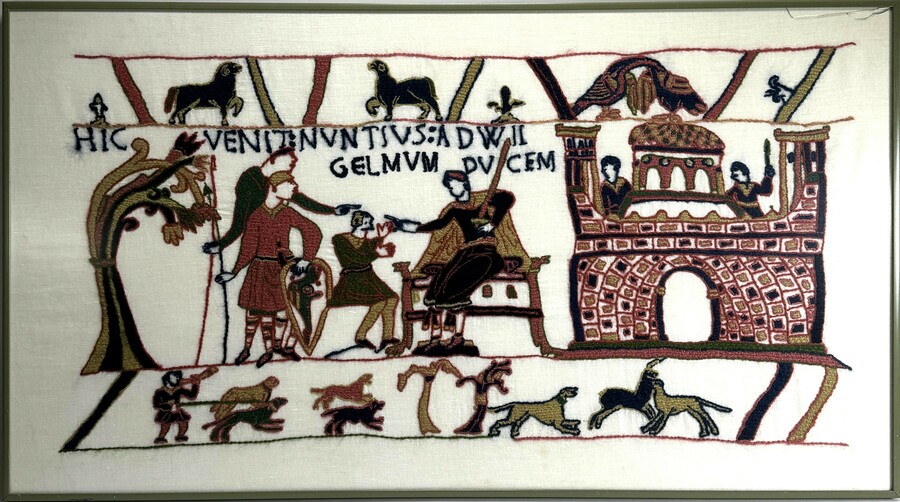 HIC VENIT:NUNTIUS:AD WII
GELMVM DVCEM